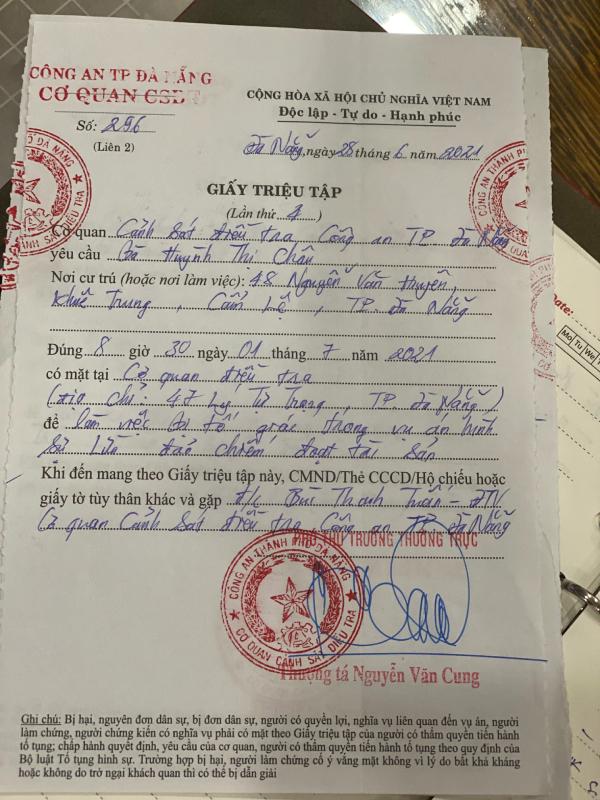 CÔNG AN TP ĐÀ NẴNG
CƠ QUAN CSĐT
CỘNG HÒA XÃ HỘI CHỦ NGHĨA VIỆT NAM
Độc lập - Tự do - Hạnh phúc
Số: 296
(Liên 2)
Đà Nẵng, ngày 28 tháng 6 năm 2021
GIẤY TRIỆU TẬP
(Lần thứ )
Cơ quan Cảnh sát điều tra Công an TP Đà Nẵng
yêu cầu Bà Huỳnh Thị Châu
Nơi cư trú (hoặc nơi làm việc): 48 Nguyễn Văn Huyên,
Khuê Trung, Cẩm Lệ, TP. Đà Nẵng
Đúng 8 giờ 30 ngày 01 tháng 7 năm 2021
có mặt tại Cơ quan điều tra
(địa chỉ: 47 Lý Tự Trọng, TP. Đà Nẵng)
để làm việc bị tố giác trong vụ án hình
sự Lừa đảo chiếm đoạt tài sản
Khi đến mang theo Giấy triệu tập này, CMND/Thẻ CCCD/Hộ chiếu hoặc
giấy tờ tùy thân khác và gặp đ/c Bùi Thanh Tuấn - ĐTV
Cơ quan Cảnh sát điều tra Công an TP Đà Nẵng
PHÓ THỦ TRƯỞNG THƯỜNG TRỰC
CÔNG AN THÀNH PHỐ ĐÀ NẴNG
CƠ QUAN CẢNH SÁT ĐIỀU TRA
Thượng tá Nguyễn Văn Cung
Ghi chú: Bị hại, nguyên đơn dân sự, bị đơn dân sự, người có quyền lợi, nghĩa vụ liên quan đến vụ án, người
làm chứng, người chứng kiến có nghĩa vụ phải có mặt theo Giấy triệu tập của người có thẩm quyền tiến hành
tố tụng; chấp hành quyết định, yêu cầu của cơ quan, người có thẩm quyền tiến hành tố tụng theo quy định của
Bộ luật Tố tụng hình sự. Trường hợp bị hại, người làm chứng cố ý vắng mặt không vì lý do bất khả kháng
hoặc không do trở ngại khách quan thì có thể bị dẫn giải
Date:
Mo Tu We